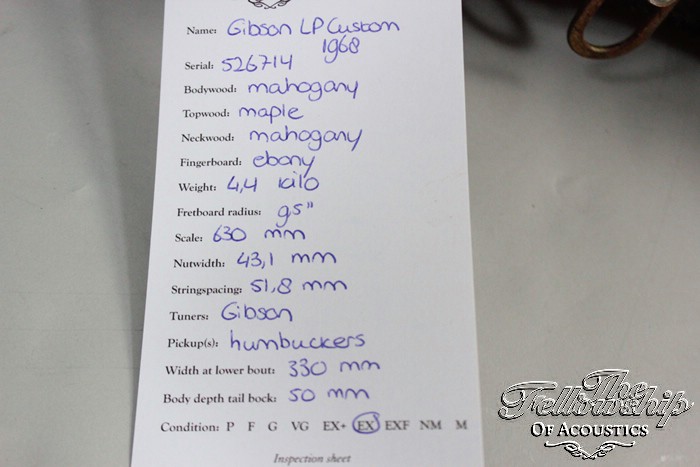 Name: Gibson LP Custom
1968
Serial: 526714
Bodywood: mahogany
Topwood: maple
Neckwood: mahogany
Fingerboard: ebony
Weight: 4,4 kilo
Fretboard radius: 95"
Scale: 630 mm
Nutwidth: 43,1 mm
Stringspacing: 51,8 mm
Tuners: Gibson
Pickup(s): humbuckers
Width at lower bout: 330 mm
Body depth tail bock: 50 mm
Condition: P F G VG EX+ EX EXF NM M
Inspection sheet
The
Fellowship
OF ACOUSTICS